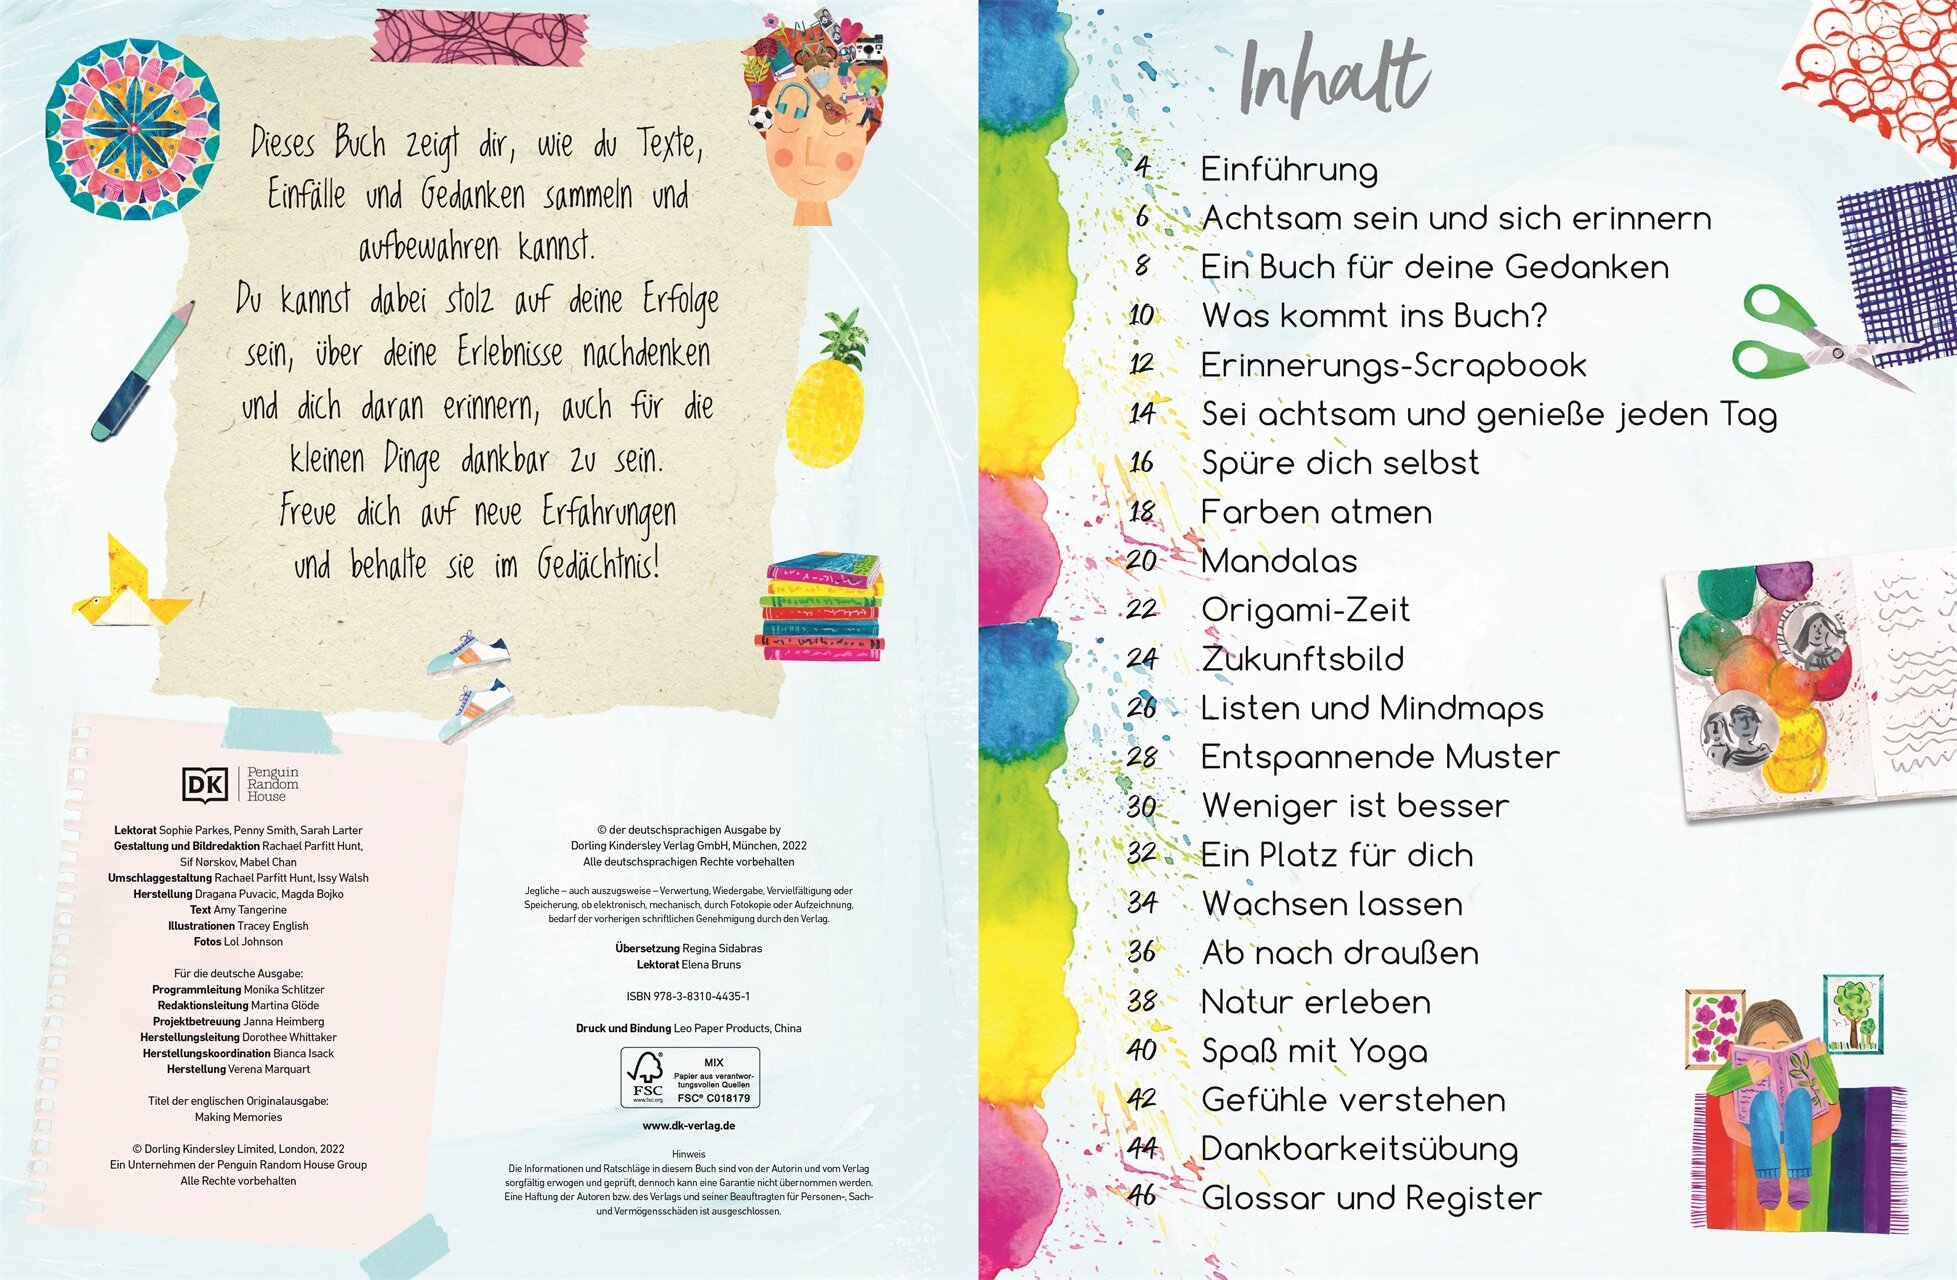 Dieses Buch zeigt dir, wie du Texte,
Einfälle und Gedanken sammeln und
aufbewahren kannst.
Du kannst dabei stolz auf deine Erfolge
sein, über deine Erlebnisse nachdenken
und dich daran erinnern, auch für die
kleinen Dinge dankbar zu sein.
Freue dich auf neue Erfahrungen
und behalte sie im Gedächtnis!
DK
Penguin
Random
House
Lektorat Sophie Parkes, Penny Smith, Sarah Larter
Gestaltung und Bildredaktion Rachael Parfitt Hunt,
Sif Nørskov, Mabel Chan
Umschlaggestaltung Rachael Parfitt Hunt, Issy Walsh
Herstellung Dragana Puvacic, Magda Bojko
Text Amy Tangerine
Illustrationen Tracey English
Fotos Lol Johnson
Für die deutsche Ausgabe:
Programmleitung Monika Schlitzer
Redaktionsleitung Martina Glöde
Projektbetreuung Janna Heimberg
Herstellungsleitung Dorothee Whittaker
Herstellungskoordination Bianca Isack
Herstellung Verena Marquart
Titel der englischen Originalausgabe:
Making Memories
© Dorling Kindersley Limited, London, 2022
Ein Unternehmen der Penguin Random House Group
Alle Rechte vorbehalten
© der deutschsprachigen Ausgabe by
Dorling Kindersley Verlag GmbH, München, 2022
Alle deutschsprachigen Rechte vorbehalten
Jegliche – auch auszugsweise – Verwertung, Wiedergabe, Vervielfältigung oder
Speicherung, ob elektronisch, mechanisch, durch Fotokopie oder Aufzeichnung,
bedarf der vorherigen schriftlichen Genehmigung durch den Verlag.
Übersetzung Regina Sidabras
Lektorat Elena Bruns
ISBN 978-3-8310-4435-1
Druck und Bindung Leo Paper Products, China
FSC
www.fsc.org
MIX
Papier aus verantwor-
tungsvollen Quellen
FSC® C018179
www.dk-verlag.de
Hinweis
Die Informationen und Ratschläge in diesem Buch sind von der Autorin und vom Verlag
sorgfältig erwogen und geprüft, dennoch kann eine Garantie nicht übernommen werden.
Eine Haftung der Autoren bzw. des Verlags und seiner Beauftragten für Personen-, Sach-
und Vermögensschäden ist ausgeschlossen.
Inhalt
4 Einführung
6 Achtsam sein und sich erinnern
8 Ein Buch für deine Gedanken
10 Was kommt ins Buch?
12 Erinnerungs-Scrapbook
14 Sei achtsam und genieße jeden Tag
16 Spüre dich selbst
18 Farben atmen
20 Mandalas
22 Origami-Zeit
24 Zukunftsbild
26 Listen und Mindmaps
28 Entspannende Muster
30 Weniger ist besser
32 Ein Platz für dich
34 Wachsen lassen
36 Ab nach draußen
38 Natur erleben
40 Spaß mit Yoga
42 Gefühle verstehen
44 Dankbarkeitsübung
46 Glossar und Register